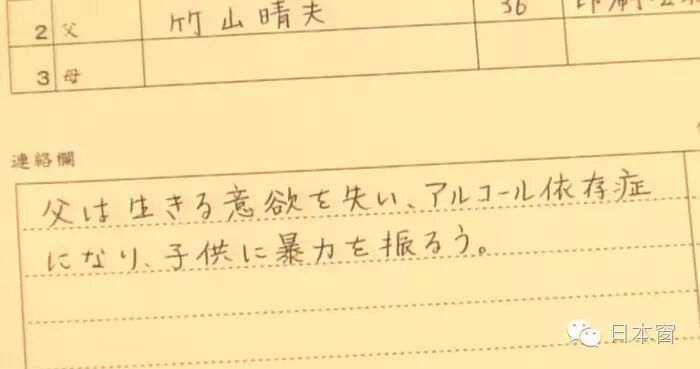 2 父 竹山晴夫 36
3 母
連絡欄
父は生きる意欲を失い、アルコール依存症
になり、子供に暴力を振るう。
日本窗